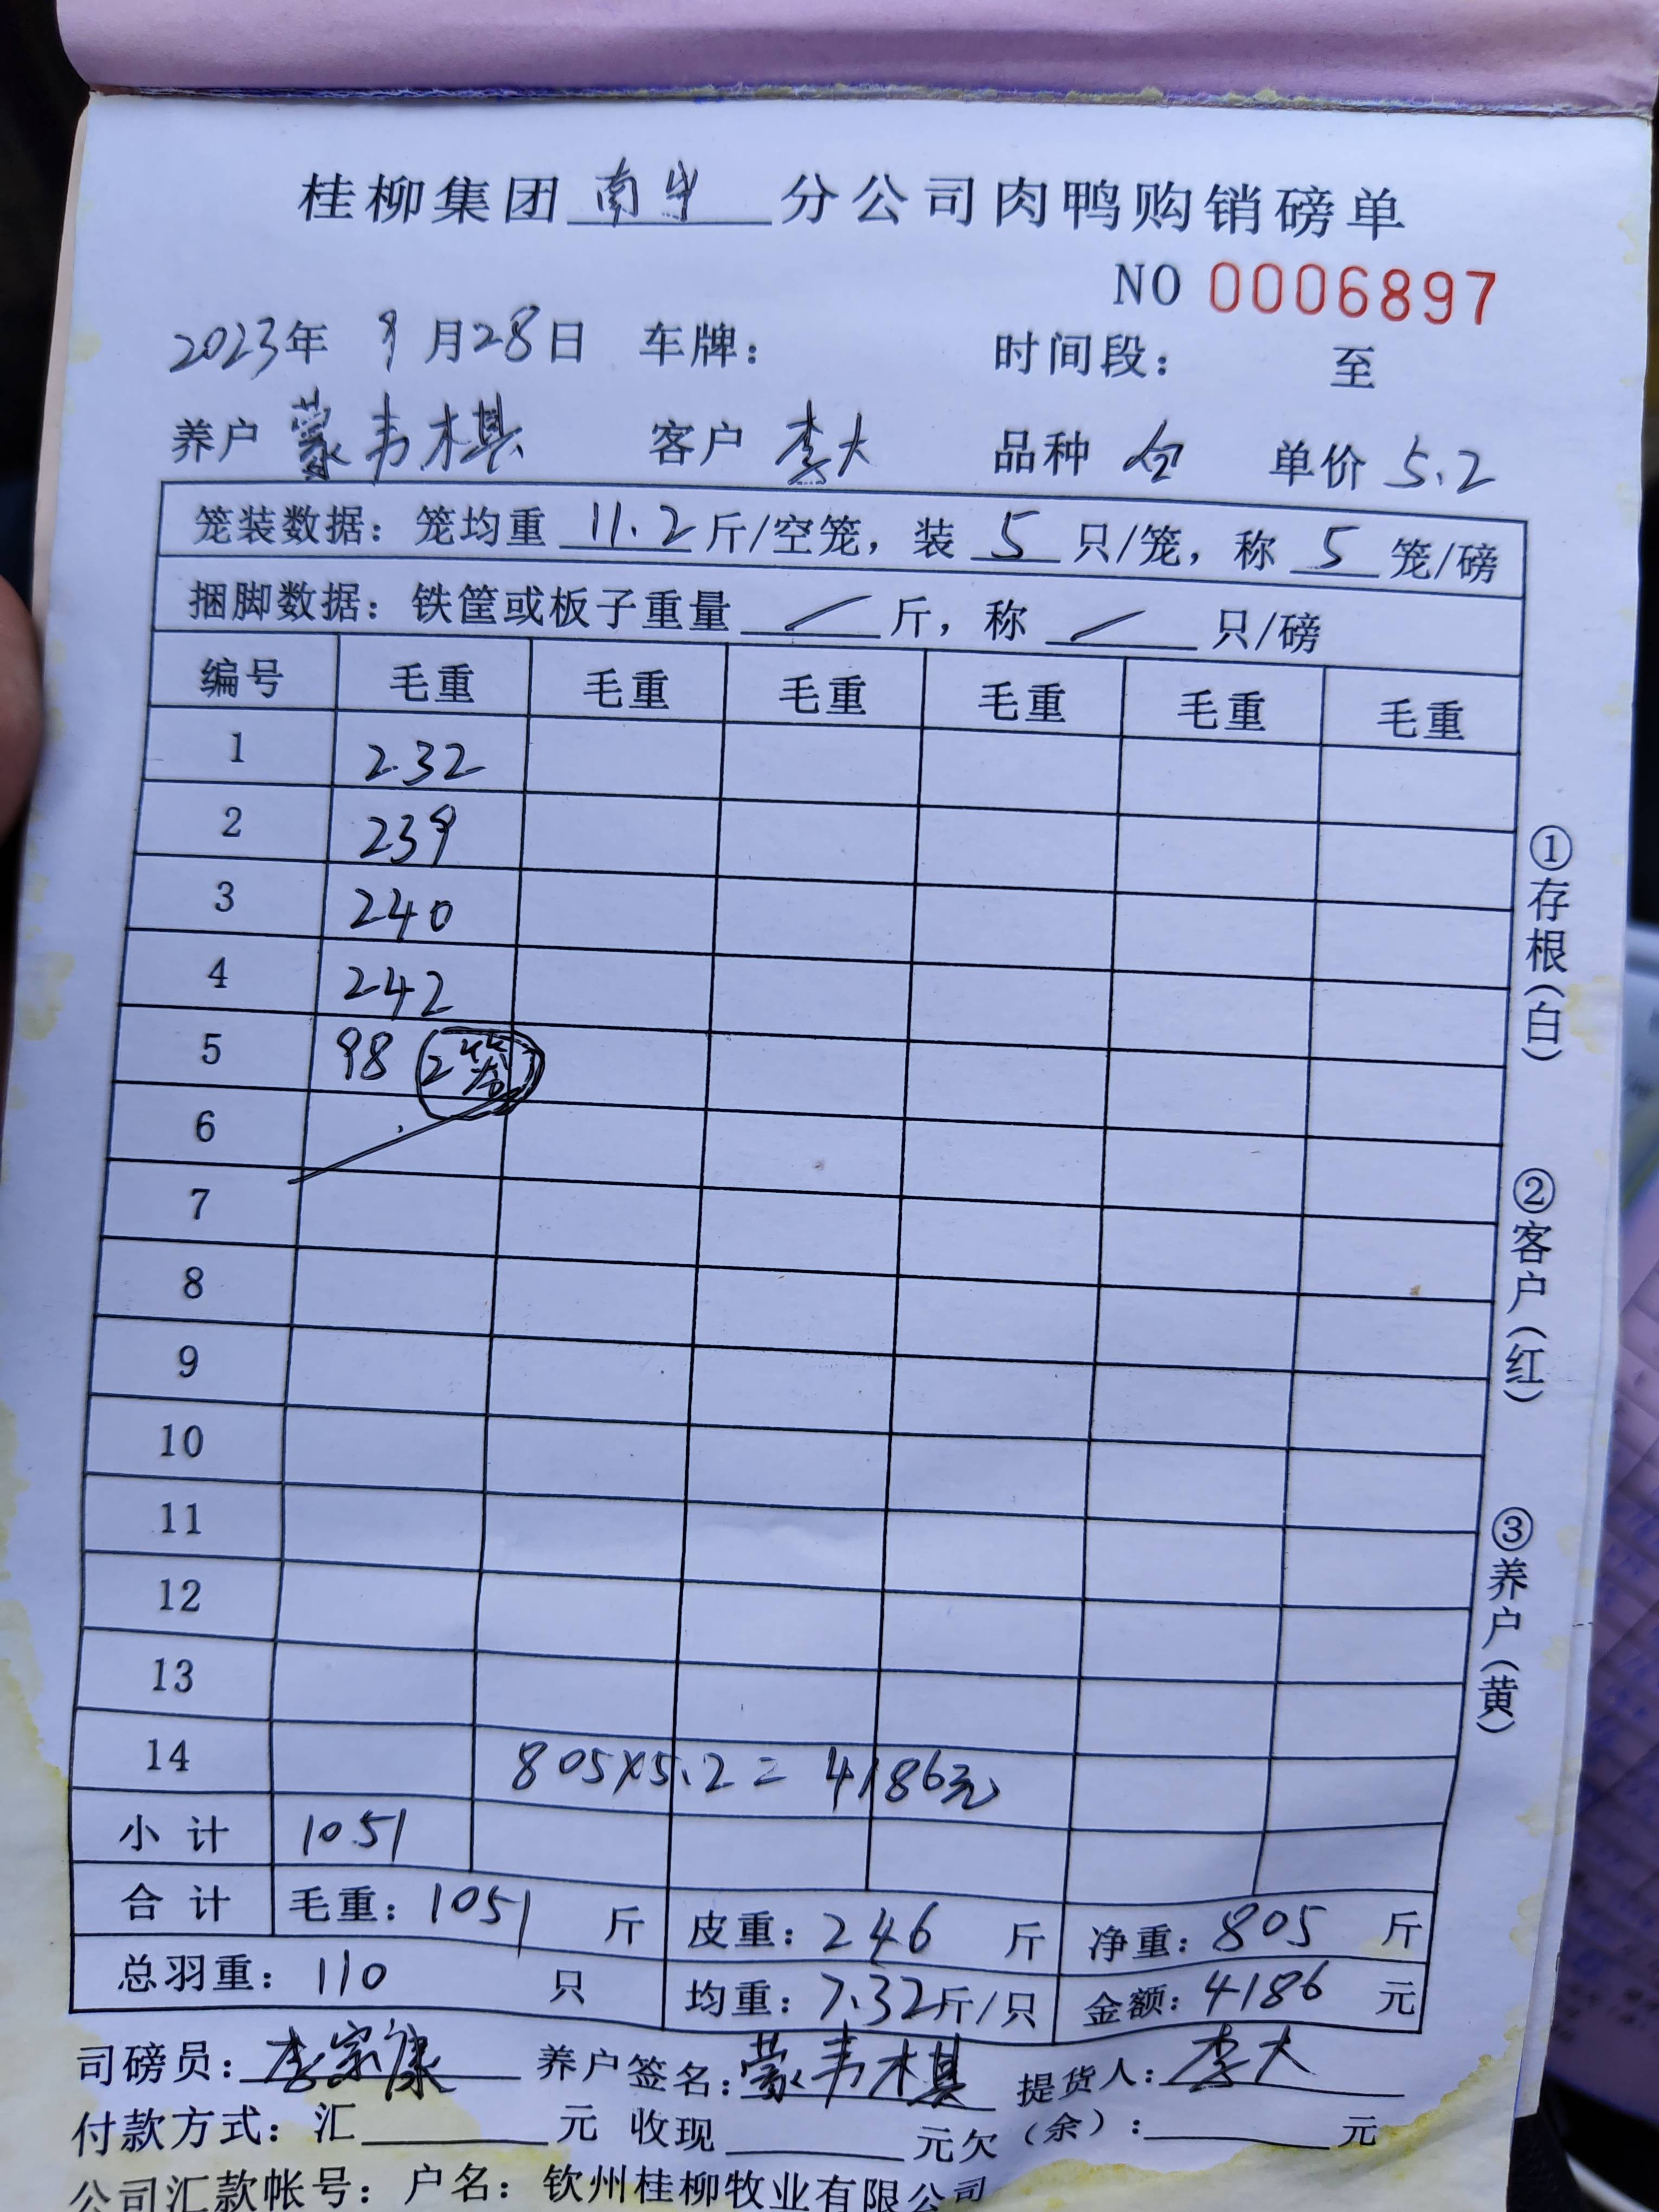 桂柳集团南宁分公司肉鸭购销磅单
NO 0006897
2023年 9月28日 车牌： 时间段： 至
养户 蒙韦棋 客户 李大 品种 仝 单价 5.2
笼装数据：笼均重 11.2 斤/空笼，装 5 只/笼，称 5 笼/磅
捆脚数据：铁筐或板子重量 / 斤，称 / 只/磅
编号 毛重 毛重 毛重 毛重 毛重 毛重
1 232
2 239
3 240
4 242
5 98 (2笼)
6
7
8
9
10
11
12
13
14 805×5.2=4186元
小计 1051
合计 毛重：1051 斤 皮重：246 斤 净重：805 斤
总羽重：110 只 均重：7.32斤/只 金额：4186 元
司磅员：李宗康 养户签名：蒙韦棋 提货人：李大
付款方式：汇 元 收现 元欠（余）： 元
公司汇款帐号：户名：钦州桂柳牧业有限公司
①存根（白）
②客户（红）
③养户（黄）